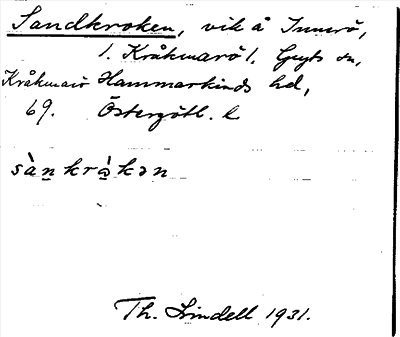 Sandkroken, vik å Innerö,
1. Kråkmarö 1. Gryts sn,
Kråkmarö Hammarkinds hd,
69. Östergötl. l
sàn̲krò̲kən
Th. Lindell 1931.